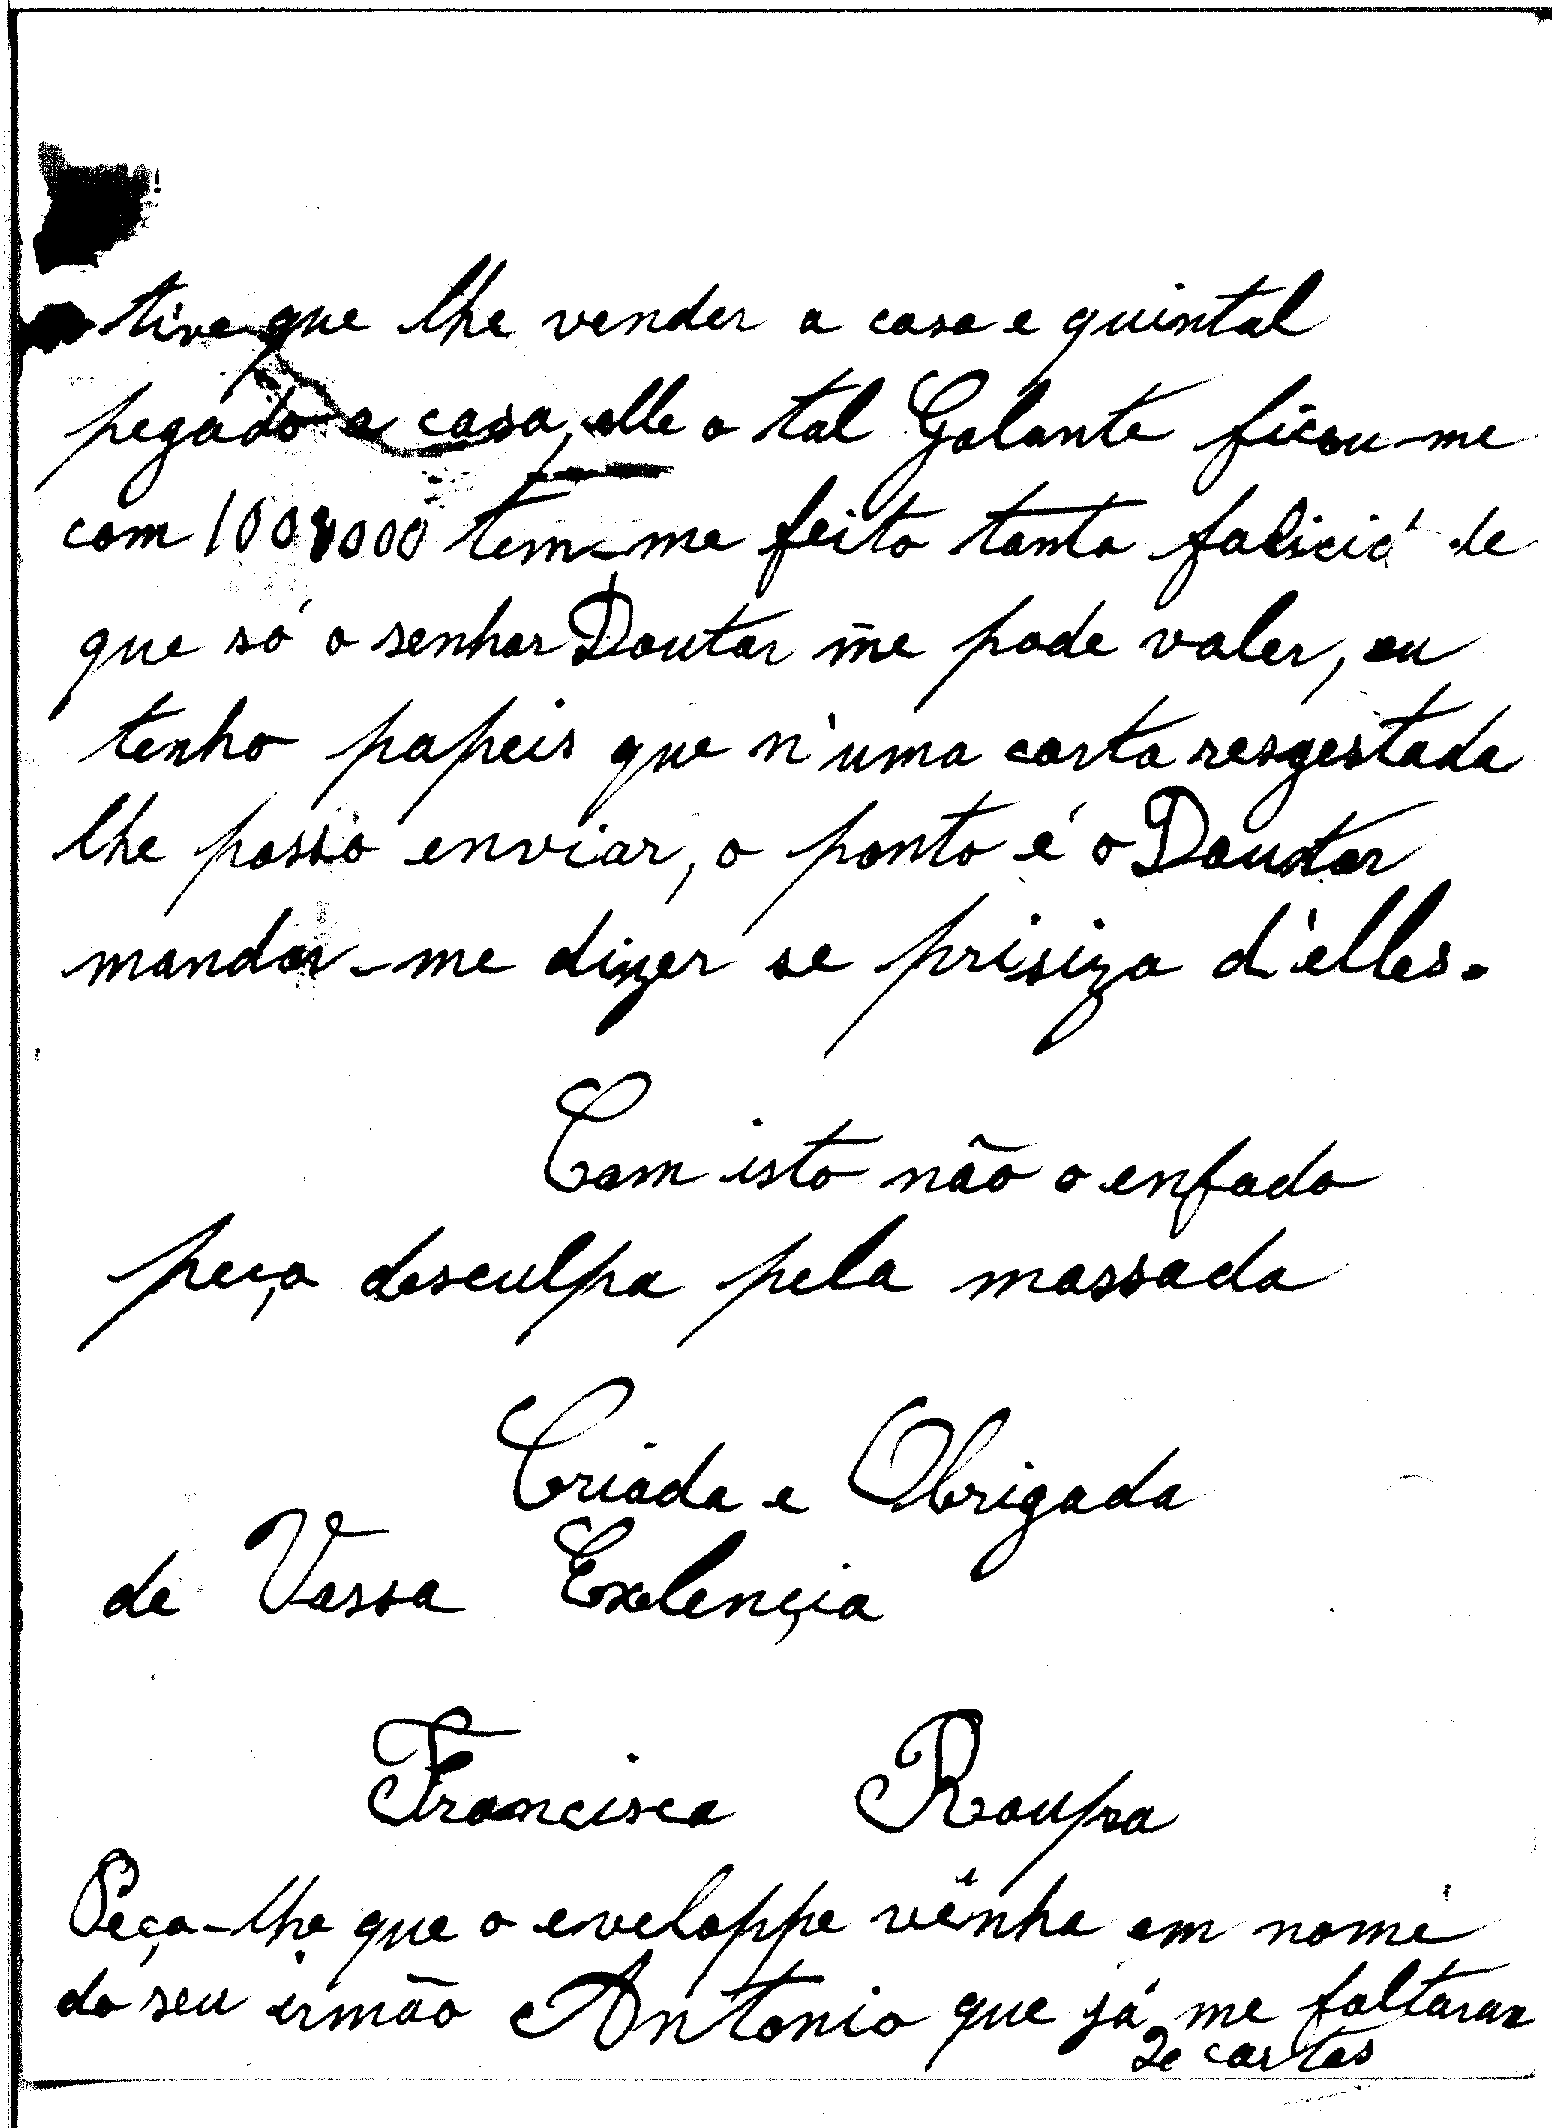 tive que lhe vender a casa e quintal
pegado a casa, elle o tal Galante ficou-me
com 100$000 tem-me feito tanta falicid de
que só o senhor Doutor me pode valer, eu
tenho papeis que n'uma carta resgestada
lhe posso enviar, o ponto é o Doutor
mandar-me dizer se prisiza d'elles.
Com isto não o enfado
peço desculpa pela massada
Criada e Obrigada
de Vossa Exlençia
Francisca Roupa
Peço-lhe que o eveloppe vênha em nome
do seu irmão Antonio que já me faltaran
2e cartas